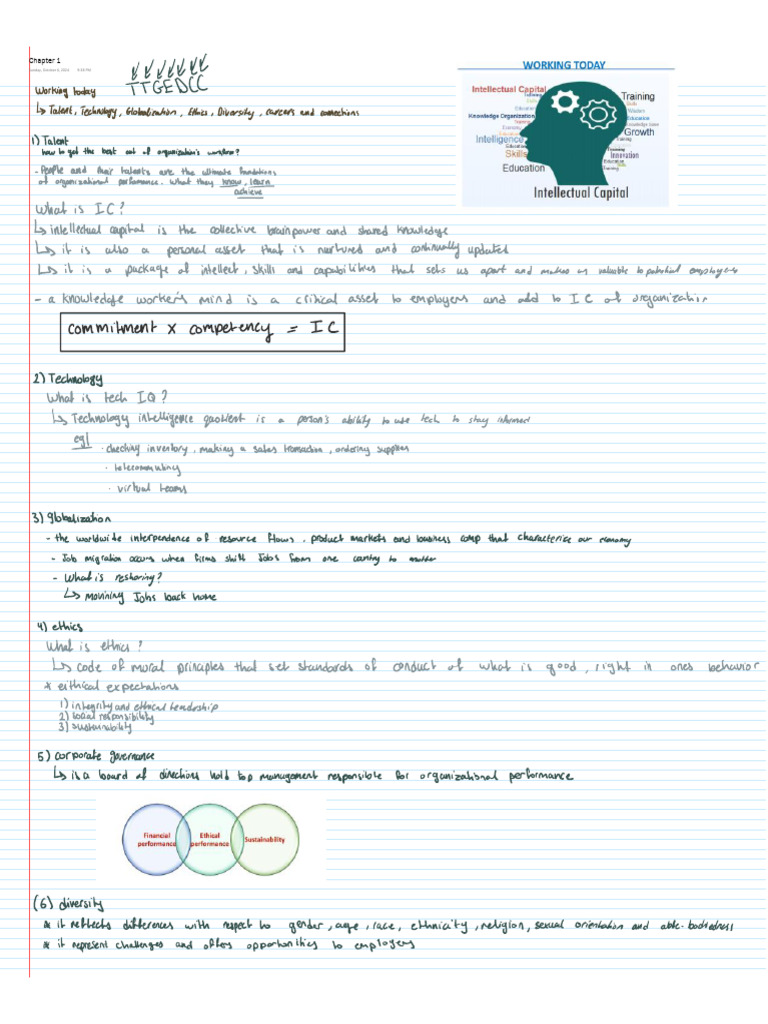 Chapter 1
Sunday, October 6, 2024 9:38 PM
TTGEDCC
Working today
↳ Talent, Technology, Globalization, Ethics, Diversity, careers and connections
WORKING TODAY
Intellectual Capital
Training
Skills
Education
Knowledge Organization
Training
Economy
Education
Intelligence
Education
Skills
Training
Education
Training
Skills
Wisdom
Education
Knowledge base
Growth
Training
Innovation
Education
Training
Intellectual Capital
1) Talent
how to get the best out of organization's workforce?
- People and their talents are the ultimate foundations
of organizational perfomance. What they know, learn
achieve
What is IC?
↳ intellectual capital is the collective brainpower and shared knowledge
↳ it is also a personal asset that is nurtured and continually updated
↳ it is a package of intellect, skills and capabilities that sets us apart and makes us valuable to potential employers
- a knowledge worker's mind is a critical asset to employers and add to IC of organization
commitment x competency = IC
2) Technology
What is tech IQ?
↳ Technology intelligence quotient is a person's ability to use tech to stay informed
eg|
· checking inventory, making a sales transaction, ordering supplies
· telecommuting
· virtual teams
3) globalization
- the worldwide interpendence of resource flows, product markets and business comp that characterice our economy
- Job migration occurs when firms shift Jobs from one country to another
- What is reshoring?
↳ movining Jobs back home
4) ethics
What is ethics?
↳ code of moral principles that set standards of conduct of what is good, right in ones behavior
* eithical expectations
1) integrity and ethical leadership
2) social responsibility
3) sustainability
5) corporate governance
↳ is a board of directions hold top management responsible for organizational performance
Financial performance
Ethical performance
Sustainability
(6) diversity
* it reflects differences with respect to gender, age, race, ethnicity, religion, sexual orientation and able-bodiedness
* it represent challenges and offers opportunities to employers